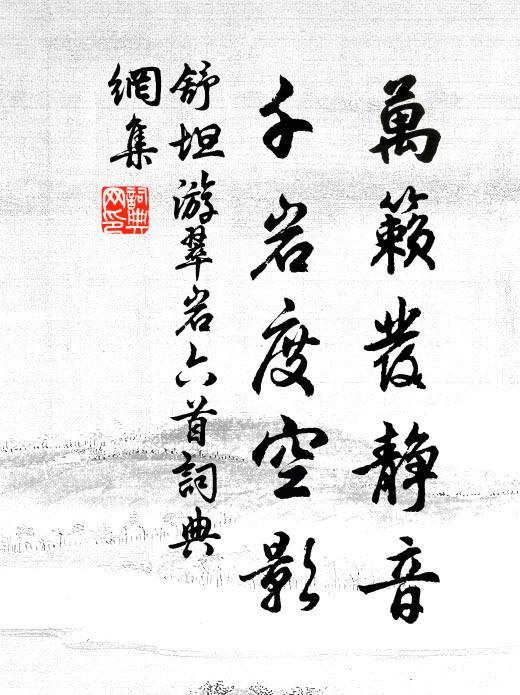 萬籟發静音
千岩度空影
舒坦游翠岩六首詞典
網集
詞典
网印